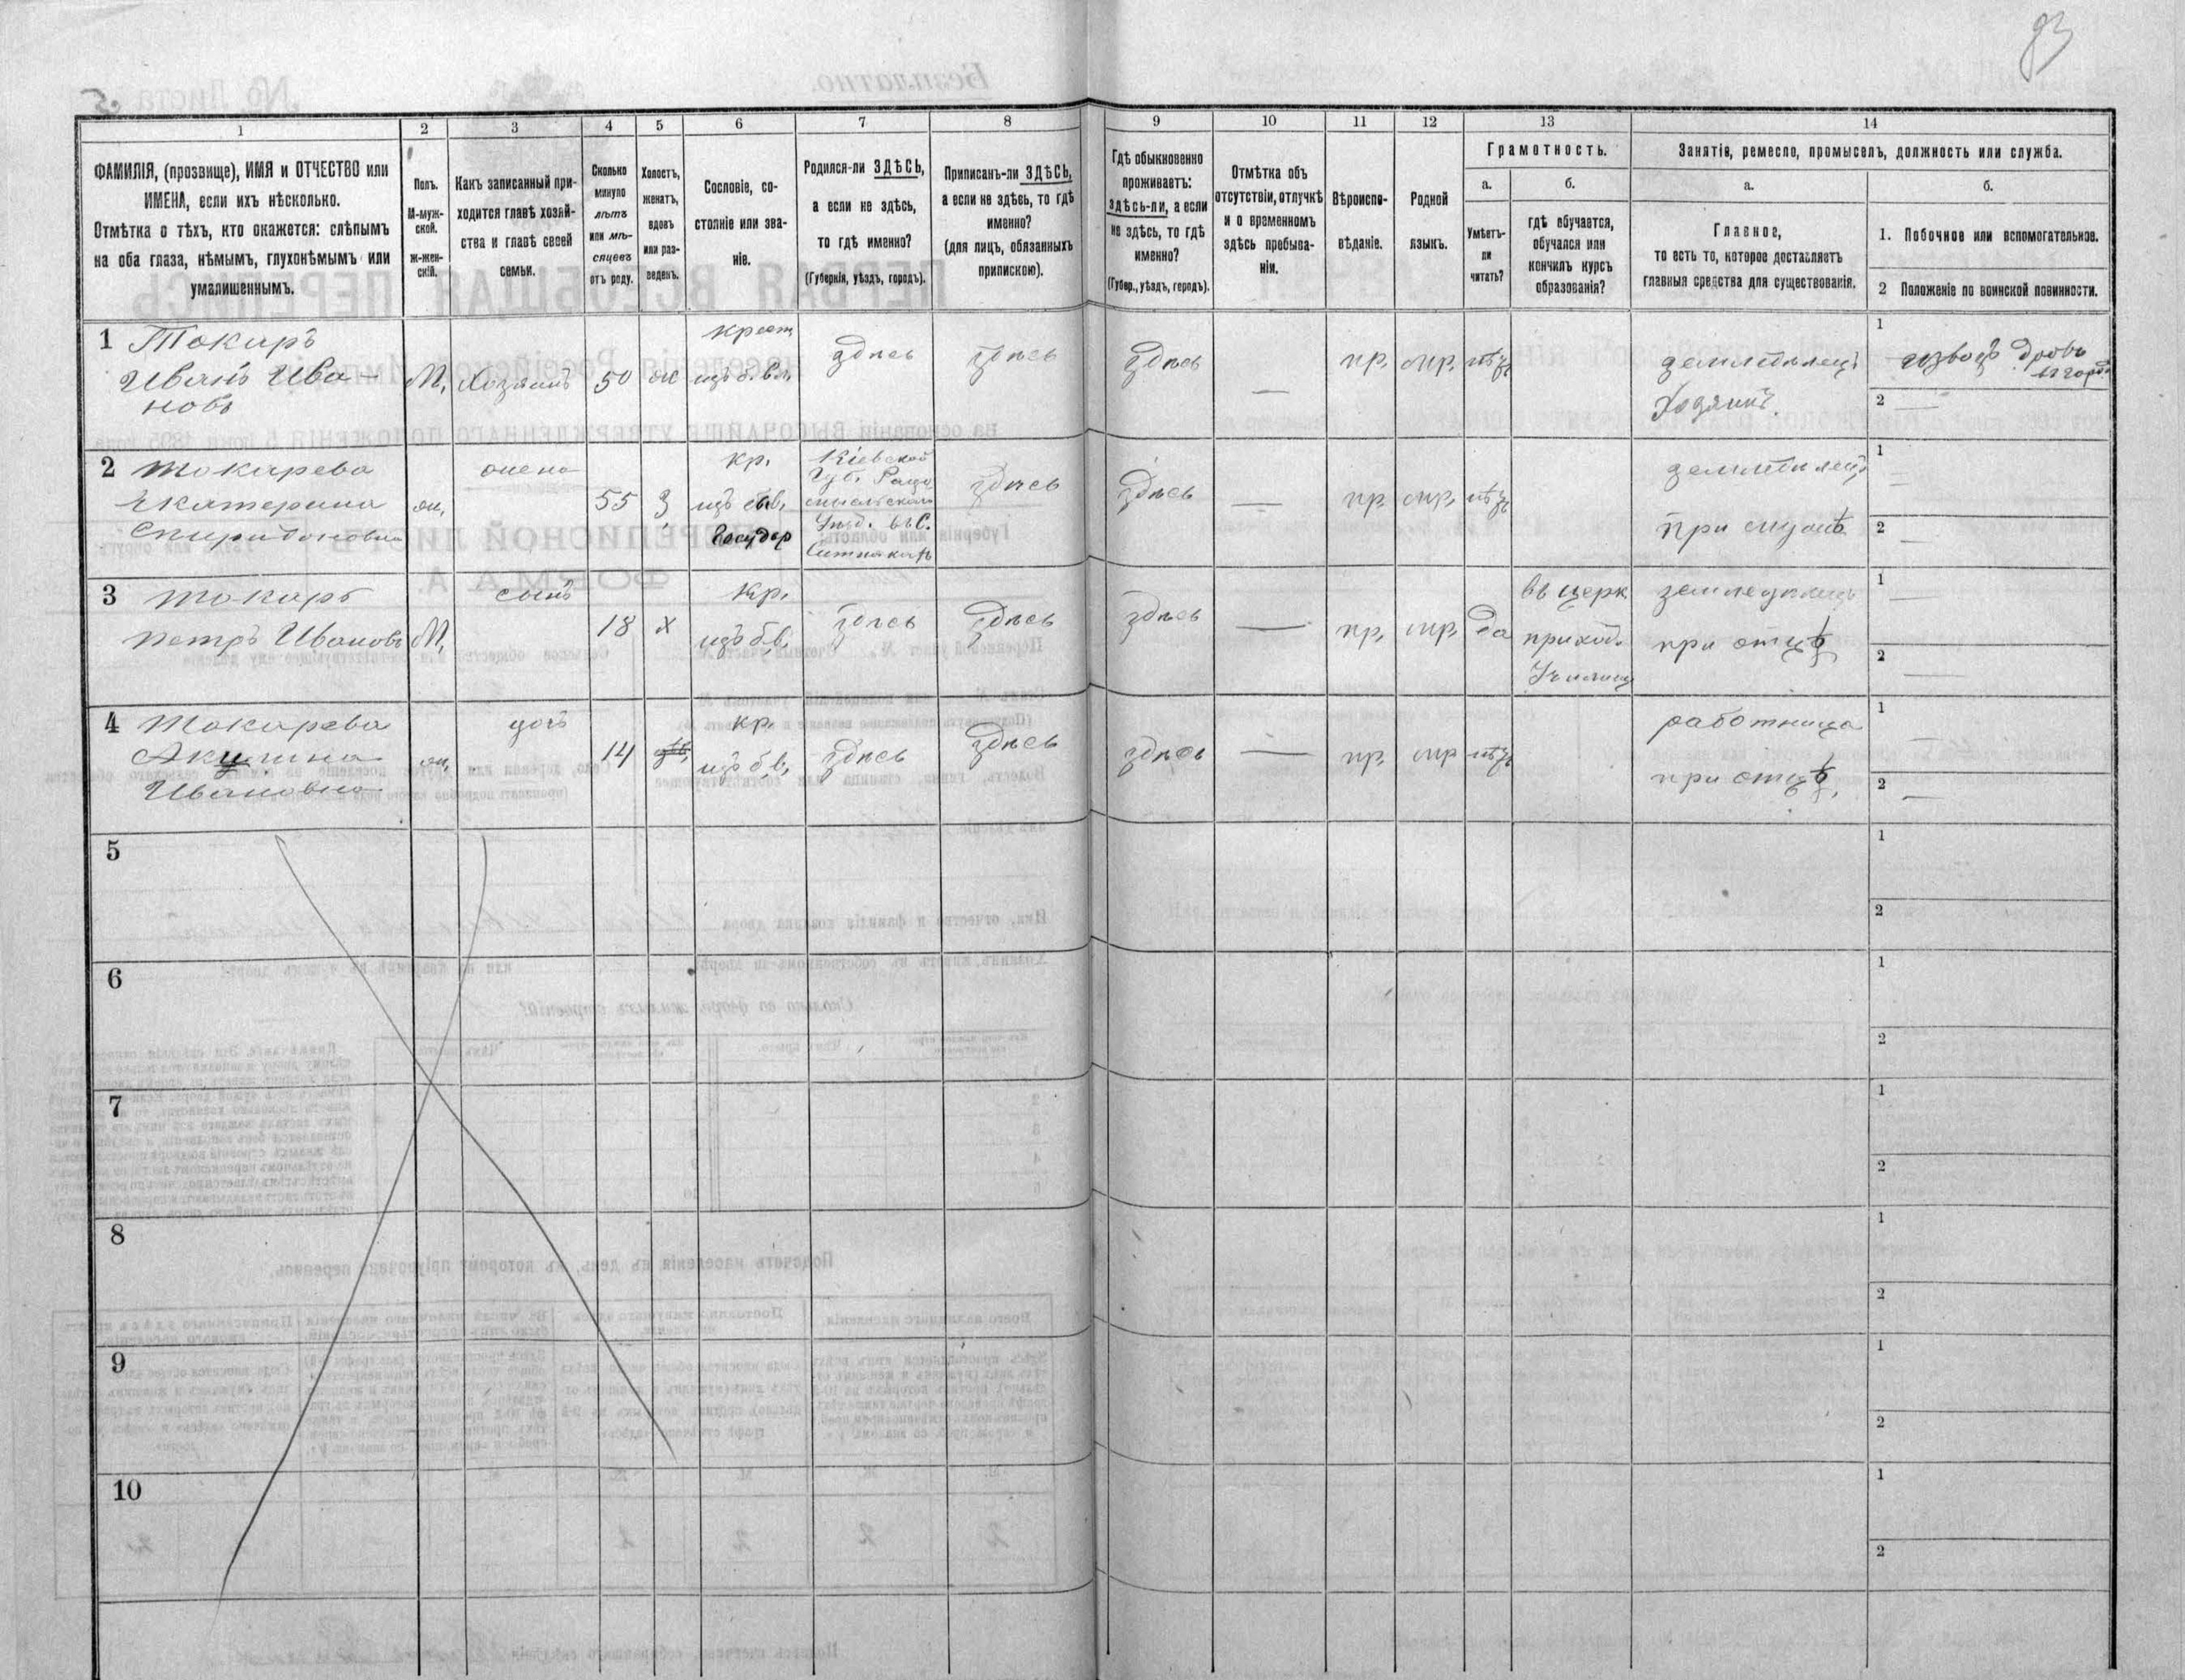 93
1
2
3
4
5
6
7
8
9
10
11
12
13
14
ФАМИЛІЯ, (прозвище), ИМЯ и ОТЧЕСТВО или
ИМЕНА, если ихъ нѣсколько.
Отмѣтка о тѣхъ, кто окажется: слѣпымъ
на оба глаза, нѣмымъ, глухонѣмымъ или
умалишеннымъ.
Полъ.
М-муж-
ской.
ж-жен-
скій.
Какъ записанный при-
ходится главѣ хозяй-
ства и главѣ своей
семьи.
Сколько
минуло
лѣтъ
или мѣ-
сяцевъ
отъ роду.
Холостъ,
женатъ,
вдовъ
или раз-
веденъ.
Сословіе, со-
стояніе или зва-
ніе.
Родился-ли ЗДѢСЬ,
а если не здѣсь,
то гдѣ именно?
(Губернія, уѣздъ, городъ).
Приписанъ-ли ЗДѢСЬ,
а если не здѣсь, то гдѣ
именно?
(для лицъ, обязанныхъ
припискою).
Гдѣ обыкновенно
проживаетъ:
здѣсь-ли, а если
не здѣсь, то гдѣ
именно?
(Губер., уѣздъ, городъ).
Отмѣтка объ
отсутствіи, отлучкѣ
и о временномъ
здѣсь пребыва-
ніи.
Вѣроиспо-
вѣданіе.
Родной
языкъ.
Грамотность.
а.
Умѣетъ-
ли
читать?
б.
гдѣ обучается,
обучался или
кончилъ курсъ
образованія?
Занятія, ремесло, промыселъ, должность или служба.
а.
Главное,
то есть то, которое доставляетъ
главныя средства для существованія.
б.
1. Побочное или вспомогательное.
2 Положеніе по воинской повинности.
1 Токарь
Иванъ Ива-
новъ
М,
Хозяинъ
50
ж
крест
изъ б. вл.
здѣсь
здѣсь
здѣсь
—
пр.
мр.
нѣтъ
земледѣлецъ
Хозяинъ.
1
извозъ дровъ
въ городъ
2 —
2 Токарева
Екатерина
Спиридоновна
ж,
жена
55
з
кр.
изъ быв.
Государ
Кіевской
Губ. Радо
мысльскаго
Уѣзд. въ С.
Ситнякахъ
здѣсь
здѣсь
—
пр.
мр.
нѣтъ
земледѣлецъ
при мужѣ
1 —
2 —
3 Токарь
Петръ Ивановъ
М,
сынъ
18
х
кр.
изъ б. в.
здѣсь
здѣсь
здѣсь
—
пр.
мр.
да
въ церк
приход.
Училищ
земледѣлецъ
при отцѣ
1 —
2 —
4 Токарева
Акулина
Ивановна
ж,
дочь
14
кр.
изъ б. в.
здѣсь
здѣсь
здѣсь
—
пр.
мр
нѣтъ
работница
при отцѣ,
1 —
2 —
5
1
2
6
1
2
7
1
2
8
1
2
9
1
2
10
1
2